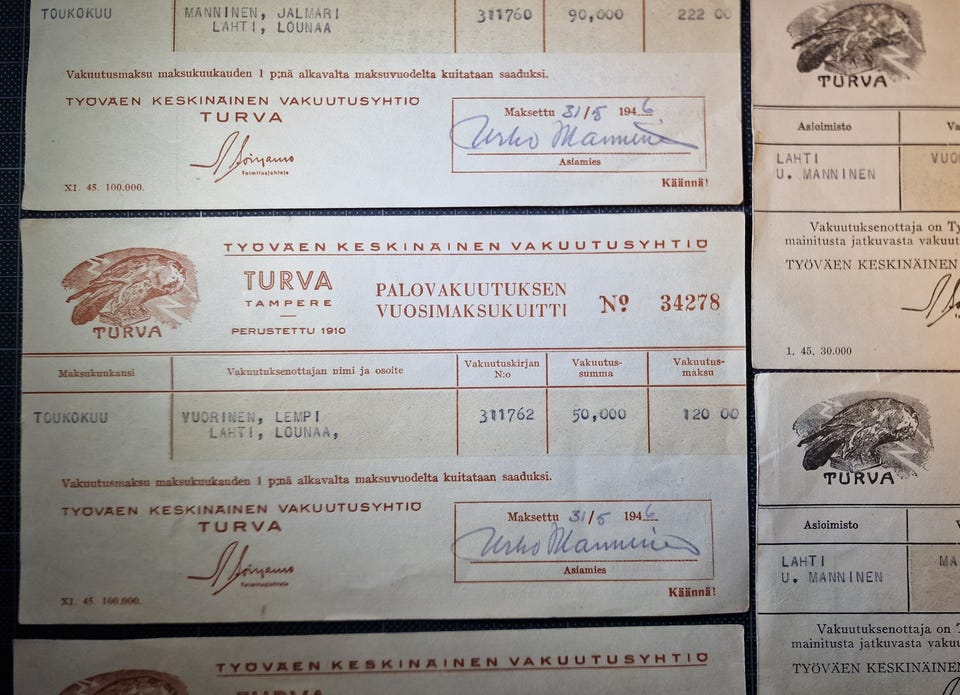 TOUKOKUU MANNINEN, JALMARI 311760 90,000 222 00
LAHTI, LOUNAA
Vakuutusmaksu maksukuukauden 1 p:nä alkavalta maksuvuodelta kuitataan saaduksi.
TYÖVÄEN KESKINÄINEN VAKUUTUSYHTIÖ
TURVA
Toimitusjohtaja
Maksettu 31/5 1946
Urho Manninen
Asiamies
XI. 45. 100.000.
Käännä!
TYÖVÄEN KESKINÄINEN VAKUUTUSYHTIÖ
TURVA
TURVA
TAMPERE
PERUSTETTU 1910
PALOVAKUUTUKSEN
VUOSIMAKSUKUITTI
No 34278
Maksukuukausi
Vakuutuksenottajan nimi ja osoite
Vakuutuskirjan
N:o
Vakuutus-
summa
Vakuutus-
maksu
TOUKOKUU VUORINEN, LEMPI 311762 50,000 120 00
LAHTI, LOUNAA,
Vakuutusmaksu maksukuukauden 1 p:nä alkavalta maksuvuodelta kuitataan saaduksi.
TYÖVÄEN KESKINÄINEN VAKUUTUSYHTIÖ
TURVA
Toimitusjohtaja
Maksettu 31/5 1946
Urho Manninen
Asiamies
XI. 45. 100.000.
Käännä!
TYÖVÄEN KESKINÄINEN VAKUUTUSYHTIÖ
TURVA
TURVA
Asioimisto Va
LAHTI VUO
U. MANNINEN
Vakuutuksenottaja on Ty
mainitusta jatkuvasta vakuut
TYÖVÄEN KESKINÄINEN
1. 45. 30.000
TURVA
Asioimisto V
LAHTI MA
U. MANNINEN
Vakuutuksenottaja on T
mainitusta jatkuvasta vakuu
TYÖVÄEN KESKINÄINEN